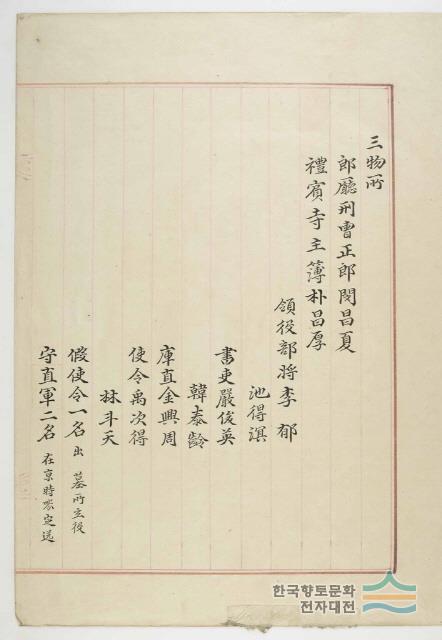 三物所
郎廳刑曹正郎閔昌夏
禮賓寺主簿朴昌厚
領役部將李郁
池得淇
書吏嚴俊英
韓泰齡
庫直金興周
使令禹次得
林斗天
假使令一名出墓所立役
守直軍二名在京時定送
한국향토문화
전자대전